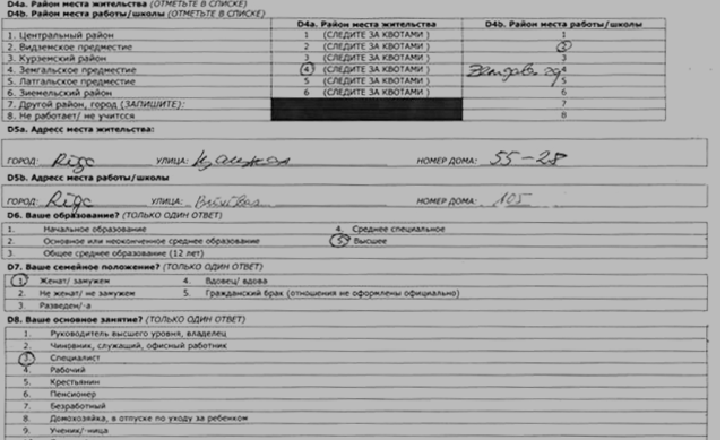 D4a. Район места жительства (ОТМЕТЬТЕ В СПИСКЕ)
D4b. Район места работы/школы (ОТМЕТЬТЕ В СПИСКЕ)
D4a. Район места жительства D4b. Район места работы/школы
1. Центральный район 1 (СЛЕДИТЕ ЗА КВОТАМИ ) 1
2. Видземское предместие 2 (СЛЕДИТЕ ЗА КВОТАМИ ) 2
3. Курземский район 3 (СЛЕДИТЕ ЗА КВОТАМИ ) 3
4. Земгальское предместие 4 (СЛЕДИТЕ ЗА КВОТАМИ ) 4
5. Латгальское предместие 5 (СЛЕДИТЕ ЗА КВОТАМИ ) 5
6. Зиемельский район 6 (СЛЕДИТЕ ЗА КВОТАМИ ) 6
7. Другой район, город (ЗАПИШИТЕ): 7
8. Не работает/ не учится 8
D5a. Адресс места жительства:
ГОРОД: Rīga УЛИЦА: НОМЕР ДОМА: 55-28
D5b. Адресс места работы/школы
ГОРОД: Rīga УЛИЦА: Brīvības НОМЕР ДОМА: 105
D6. Ваше образование? (ТОЛЬКО ОДИН ОТВЕТ)
1. Начальное образование 4. Среднее специальное
2. Основное или неоконченное среднее образование 5. Высшее
3. Общее среднее образование (12 лет)
D7. Ваше семейное положение? (ТОЛЬКО ОДИН ОТВЕТ)
1. Женат/ замужем 4. Вдовец/ вдова
2. Не женат/ не замужем 5. Гражданский брак (отношения не оформлены официально)
3. Разведен/-а
D8. Ваше основное занятие? (ТОЛЬКО ОДИН ОТВЕТ)
1. Руководитель высшего уровня, владелец
2. Чиновник, служащий, офисный работник
3. Специалист
4. Рабочий
5. Крестьянин
6. Пенсионер
7. Безработный
8. Домохозяйка, в отпуске по уходу за ребенком
9. Ученик/-ница